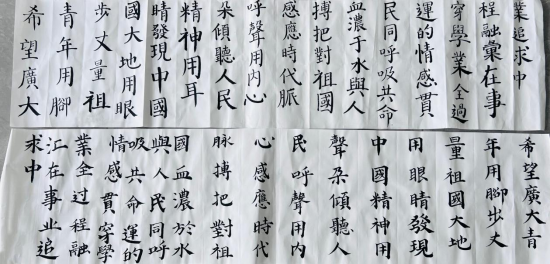 希望廣大
青年用腳
步丈量祖
國大地用眼
睛發現中國
精神用耳
朵傾聽人民
呼聲用内心
感應時代脈
搏把對祖國
血濃于水與人
民同呼吸共命
運的情感貫
穿學業全過
程融彙在事
業追求中
希望廣大青
年用腳步丈
量祖國大地
用眼睛發現
中國精神用
聲朵傾聽人
民呼聲用内
心感應時代
脈搏把對祖
國血濃於水
與人民同呼
吸共命運的
情感貫穿學
業全過程融
汇在事业追
求中